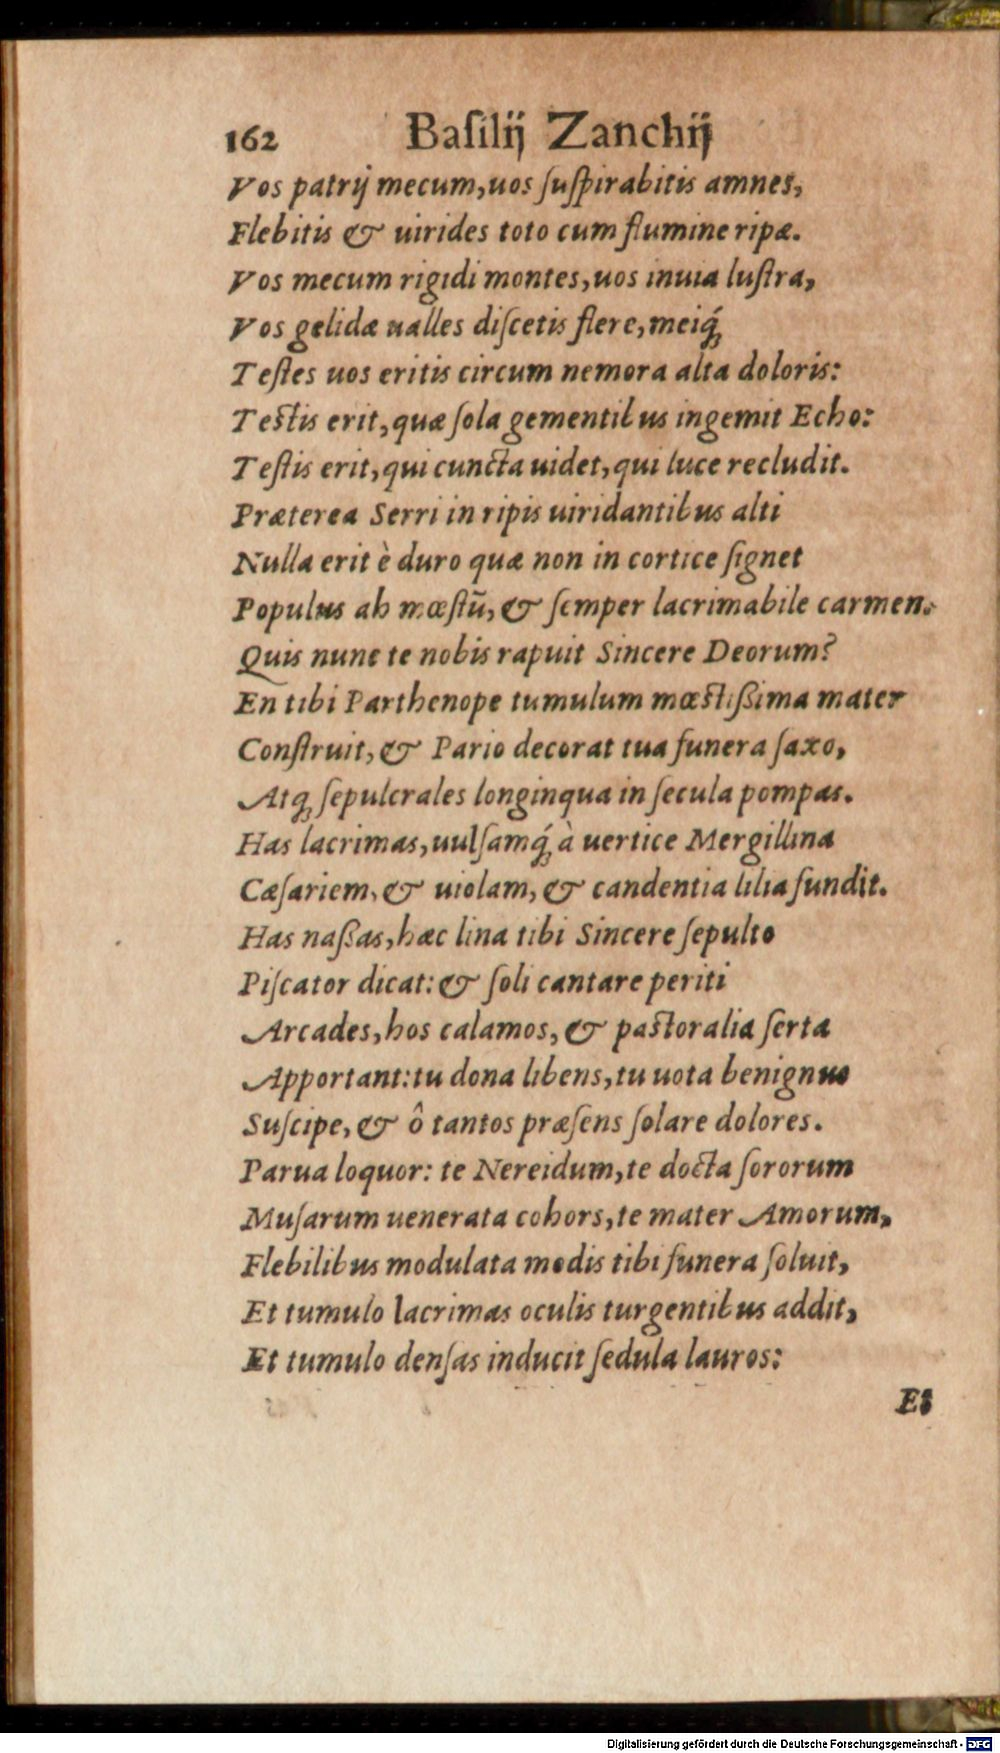 162 Baſilij Zanchij
Vos patrij mecum, uos ſuſpirabitis amnes,
Flebitis & uirides toto cum flumine ripæ.
Vos mecum rigidi montes, uos inuia luſtra,
Vos gelidæ ualles diſcetis flere, meiq́;
Teſtes uos eritis circum nemora alta doloris:
Teſtis erit, quæ ſola gementibus ingemit Echo:
Teſtis erit, qui cuncta uidet, qui luce recludit.
Præterea Serri in ripis uiridantibus alti
Nulla erit è duro quæ non in cortice ſignet
Populus ah mœſtū, & ſemper lacrimabile carmen.
Quis nunc te nobis rapuit Sincere Deorum?
En tibi Parthenope tumulum mœſtißima mater
Conſtruit, & Pario decorat tua funera ſaxo,
Atq; ſepulcrales longinqua in ſecula pompas.
Has lacrimas, uulſamq́; à uertice Mergillina
Cæſariem, & uiolam, & candentia lilia fundit.
Has naßas, hæc lina tibi Sincere ſepulto
Piſcator dicat: & ſoli cantare periti
Arcades, hos calamos, & paſtoralia ſerta
Apportant: tu dona libens, tu uota benignus
Suſcipe, & ô tantos præſens ſolare dolores.
Parua loquor: te Nereidum, te docta ſororum
Muſarum uenerata cohors, te mater Amorum,
Flebilibus modulata modis tibi funera ſoluit,
Et tumulo lacrimas oculis turgentibus addit,
Et tumulo denſas inducit ſedula lauros:
Et
Digitalisierung gefördert durch die Deutsche Forschungsgemeinschaft - DFG